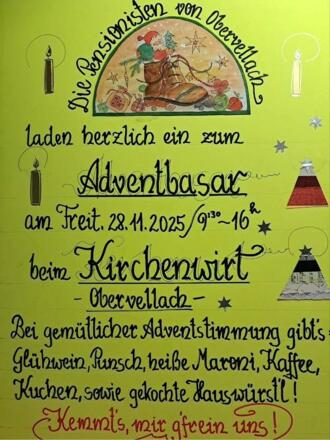 Die Pensionisten von Obervellach
laden herzlich ein zum
Adventbasar
am Freit. 28.11.2025/9¹³⁰~16ʰ
beim Kirchenwirt
- Obervellach -
Bei gemütlicher Adventstimmung gibt's:
Glühwein, Punsch, heiße Maroni, Kaffee,
Kuchen, sowie gekochte Hauswürst'l!
Kemmt's, mir g'frein uns!